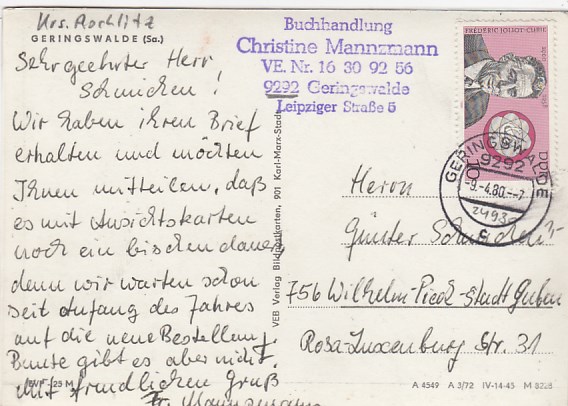 Krs. Rochlitz
GERINGSWALDE (Sa.)
Sehr geehrter Herr
Schnicken!
Wir haben ihren Brief
erhalten und möchten
Ihnen mitteilen, daß
es mit Ansichtskarten
noch ein bischen dauert,
denn wir warten schon
seit Anfang des Jahres
auf die neue Bestellung.
Bunte gibt es aber nicht.
Mit freundlichen Gruß
Fr. Mannzmann
EVP -,25 M
Buchhandlung
Christine Mannzmann
VE. Nr. 16 30 92 56
9292 Geringswalde
Leipziger Straße 5
VEB Verlag Bildpostkarten, 901 Karl-Marx-Stadt
FRÉDÉRIC JOLIOT-CURIE
DDR
10
GERINGSWALDE
9292
-9.-4.80.--7
c
Herrn
Günter Schnicken
756 Wilhelm-Pieck-Stadt Guben
Rosa-Luxemburg Str. 31
A 4549 A 3/72 IV-14-45 M 8228